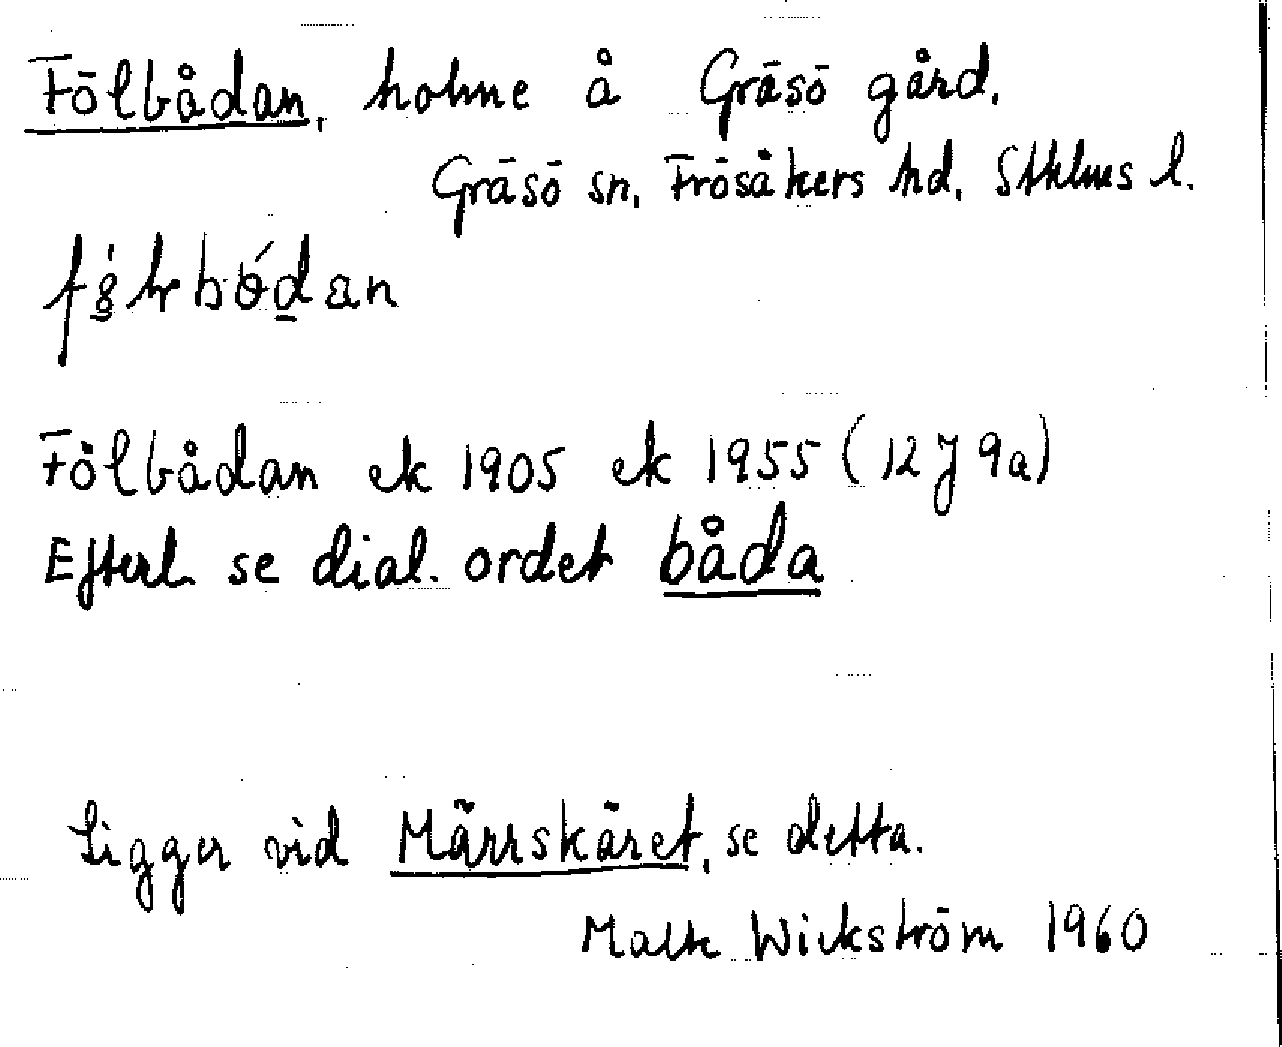 Fölbådan, holme å Gräsö gård.
Gräsö sn, Frösåkers hd, Sthlms l.
Fölbådan ek 1905 ek 1955 (12J9a)
Efterl se dial. ordet båda
Ligger vid Märrskäret, se detta.
Wickström 1960